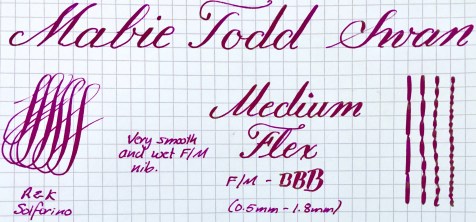 Mabie Todd Swan
Medium
Flex
F/M - BBB
(0.5mm - 1.8mm)
Very smooth
and wet F/M
nib.
R&K
Solferino